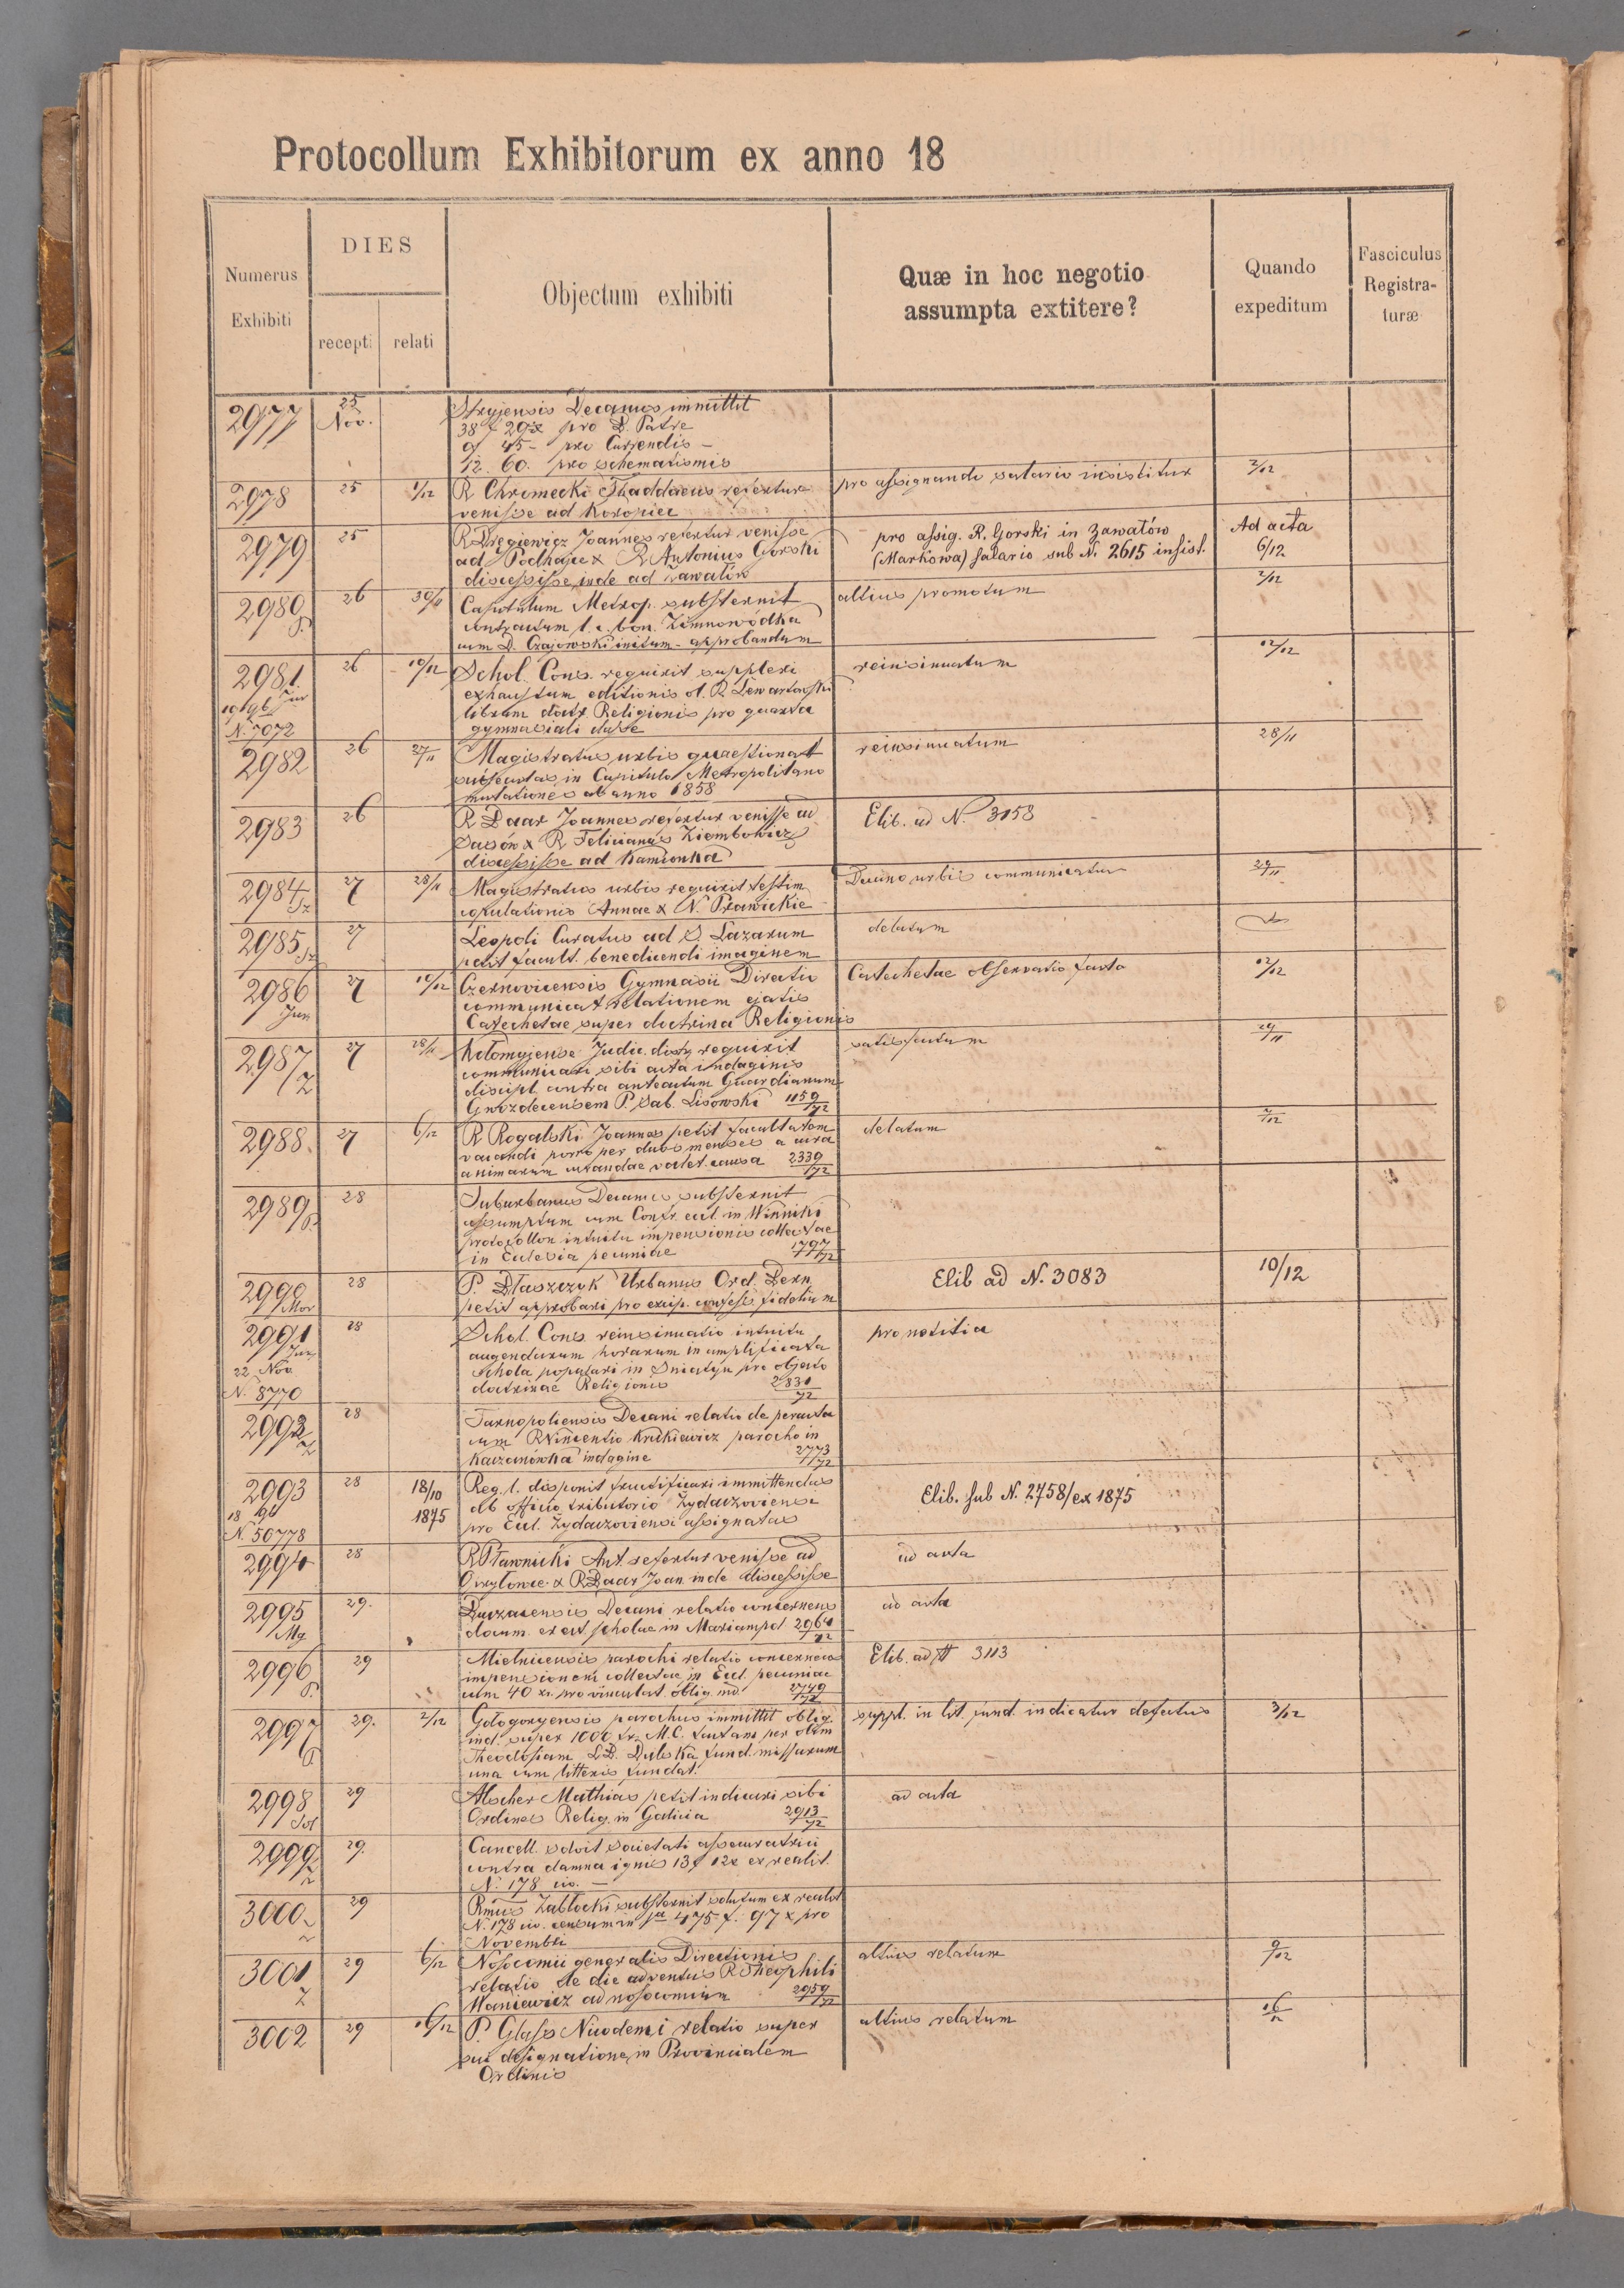 Protocollum Exhibitorum ex anno 18
Numerus
Exhibiti
DIES
recepti
relati
Objectum exhibiti
Quæ in hoc negotio
assumpta extitere?
Quando
expeditum
Fasciculus
Registra-
turæ
2977 25 Nov. Stryjensis Decanus immittit
38 f 29 x pro D. Patre
9 f 45 - pro Currendis -
12. 60. pro schematismis
2978 25 1/12 R Chromecki Thaddaeus refertur pro assignando salario insistitur 2/12
venisse ad Koropiec
2979 25 R Dręgiewicz Joannes refertur venisse pro assig. R. Gorski in Zawałów Ad acta
ad Podhajce & R Antonius Gorski (Markowa) salario sub N. 2615 insist. 6/12
discessisse inde ad Zawałów
2980 26 30/11 Capitulum Metrop. substernit altius promotum 2/12
contractum l. c. bon. Zimnowódka
cum D. Czajowski initum - approbandum
2981 26 10/12 Schol. Cons. requirit suppleri reinsinuatum 12/12
exhaustum editionis ol. R Lewartowski
librum doctr. Religionis pro quarta
N. 7072 gymnasiali classe
2982 26 27/11 Magistratus urbis quaestionat reinsinuatum 28/11
subsecutas in Capitulo Metropolitano
mutationes ab anno 1858
2983 26 R Daar Joannes refertur venisse ad Elib. ad N. 3158
Sasów & R Felicianus Ziembowicz
discessisse ad Kamionka
2984 27 28/11 Magistratus urbis requirit testim. Decano urbis communicatur 29/11
copulationis Annae & N. Prawickie
2985 27 Leopoli Curatus ad S. Lazarum delatum
petit facult. benedicendi imaginem
2986 27 10/12 Czernoviensis Gymnasii Directio Catechetae observatio facta 12/12
Jun communicat relationem ejatis
Catechetae super doctrina Religionis
2987 27 28/11 Kołomyjense Judic. distr. requirit satisfactum 29/11
communicari sibi acta indaginis
discipl. contra anteactum Guardianum
Gwozdecensem P. Sab. Lisowski 1159/72
2988 27 6/12 R Rogalski Joannes petit facultatem delatum 7/12
vacandi porro per duos menses a cura
animarum curandae valet. causa 2339/72
2989 28 Suburbanus Decanus substernit
assumptum cum Contr. eccl. in Winniki
protocollon intuitu impensionis collectae
in Ecclesia pecuniae 1797/72
2990 28 P. Błaszczyk Urbanus Ord. Bern. Elib ad N. 3083 10/12
petit approbari pro excip. confess. fidelium
2991 28 Schol. Cons. reinsinuatio intuitu pro notitia
augendarum horarum in amplificata
22 Nov. schola populari in Sniatyn pro objecto
N. 8770 doctrinae Religionis 2831/72
2992 28 Tarnopoliensis Decani relatio de peracta
cum R Vincentio Krukiewicz parocho in
Kaczanówka indagine 2773/72
2993 28 18/10 Reg. l. disponit fructificari immittendas Elib. sub N. 2758/ex 1875
1875 ab officio tributorio Zydaczoviensi
N. 50778 pro Eccl. Zydaczoviensi assignatas
2994 28 R Sławnicki Ant. refertur venisse ad ad acta
& R Daar Joan. inde discessisse
2995 29. Buczacensis Decani relatio concernens ad acta
Mg docum. erect. scholae in Mariampol 2964/72
2996 29 Mielnicensis parochi relatio concernens Elib. ad N 3113
impensionem collectae in Eccl. pecuniae
cum 40 xr. pro vinculat. oblig. ind. 2749/72
2997 29. 2/12 Gołogoryensis parochus immittit oblig. suppl. in lit. fund. indicatur defectus 3/12
ind. super 1000 fr. M.C. factam per olim
Theodosiam L.B. Dulska fund. missarum
una cum litteris fundat.
2998 29 Alscher Mathias petit indicari sibi ad acta
Ordines Relig. in Galicia 2913/72
2999 29. Cancell. solvit societati assecuratrici
contra damna ignis 13 f 12 x ex realit.
N. 178 civ. -
3000 29 Rmus Zabłocki substernit solutum ex realit.
N. 178 civ. censum in 475 f. 97 x pro
Novembri
3001 29 6/12 Nosocomii generalis Directionis altius relatum 9/12
relatio de die adventus R Theophili
Waniewicz ad nosocomium 2959/72
3002 29 16/12 P. Glass Nicodemi relatio super altius relatum 16/12
sui designatione in Provincialem
Ordinis